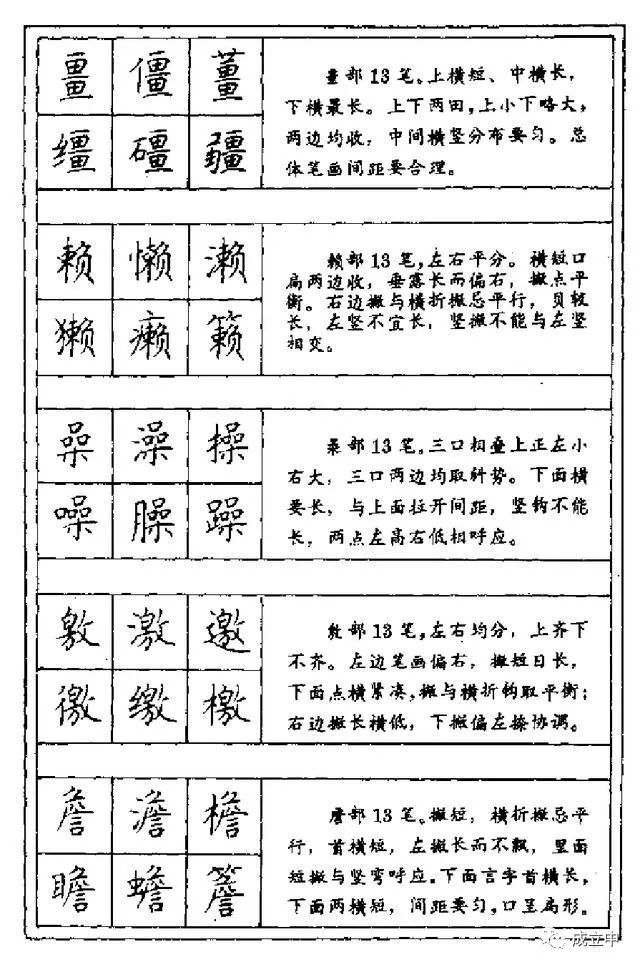 畺 僵 薑
畺部13笔。上横短、中横长，
下横最长。上下两田，上小下略大，
缰 礓 疆
两边均收，中间横竖分布要匀。总
体笔画间距要合理。
赖 懒 濑
赖部13笔，左右平分。横短口
扁两边收，垂露长而偏右，撇点平
衡。右边撇与横折撇忌平行，贝较
獭 癞 籁
长，左竖不宜长，竖撇不能与左竖
相交。
喿 澡 操
喿部13笔。三口相叠上正左小
右大，三口两边均取斜势。下面横
噪 臊 躁
要长，与上面拉开间距，竖钩不能
长，两点左高右低相呼应。
敫 激 邀
敫部13笔，左右均分，上齐下
不齐。左边笔画偏右，撇短日长，
徼 缴 檄
下面点横紧凑，撇与横折钩取平衡；
右边撇长横低，下撇偏左捺协调。
詹 澹 檐
詹部13笔。撇短，横折撇忌平
行，首横短，左撇长而不飘，里面
瞻 蟾 簷
短撇与竖弯呼应。下面言字首横长，
下面两横短，间距要匀，口呈扁形。
成立中